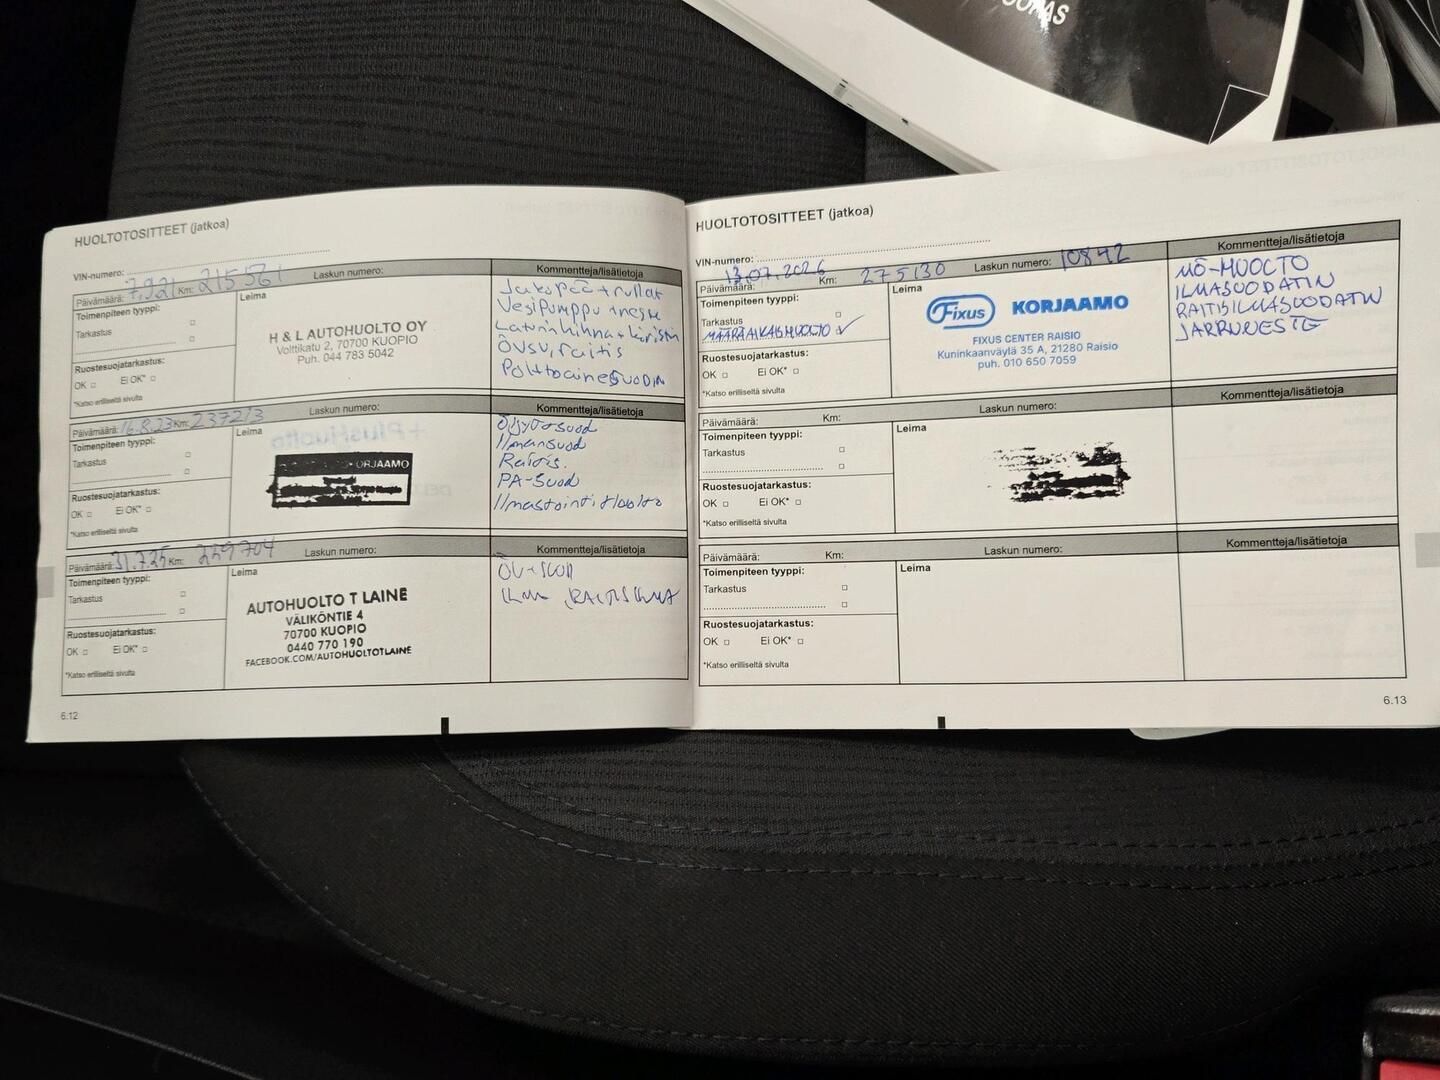 HUOLTOTOSITTEET (jatkoa)
VIN-numero:
Päivämäärä: 7.9.21 Km: 215561 Laskun numero:
Kommentteja/lisätietoja
Toimenpiteen tyyppi:
Tarkastus
Ruostesuojatarkastus:
OK Ei OK*
*Katso erilliseltä sivulta
Leima
H & L AUTOHUOLTO OY
Volttikatu 2, 70700 KUOPIO
Puh. 044 783 5042
Jakopää + rullat
Vesipumppu + neste
Laturin hihna + kiristin
ÖVSV, raitis
Polttoainesuodin
Päivämäärä: 16.8.23 Km: 237213 Laskun numero:
Kommentteja/lisätietoja
Toimenpiteen tyyppi:
Tarkastus
Ruostesuojatarkastus:
OK Ei OK*
*Katso erilliseltä sivulta
Leima
KORJAAMO
Öljyt + suod
Ilmansuod
Raitis.
PA-suod
Ilmastointihuolto
Päivämäärä: 31.7.25 Km: 259704 Laskun numero:
Kommentteja/lisätietoja
Toimenpiteen tyyppi:
Tarkastus
Ruostesuojatarkastus:
OK Ei OK*
*Katso erilliseltä sivulta
Leima
AUTOHUOLTO T LAINE
VÄLIKÖNTIE 4
70700 KUOPIO
0440 770 190
FACEBOOK.COM/AUTOHUOLTOTLAINE
ILMA RAITISILMA
6.12
HUOLTOTOSITTEET (jatkoa)
VIN-numero:
Päivämäärä: 13.07.2026 Km: 275130 Laskun numero: 10842
Kommentteja/lisätietoja
Toimenpiteen tyyppi:
Tarkastus
MÄÄRÄAIKAISHUOLTO ✓
Ruostesuojatarkastus:
OK Ei OK*
*Katso erilliseltä sivulta
Leima
Fixus KORJAAMO
FIXUS CENTER RAISIO
Kuninkaanväylä 35 A, 21280 Raisio
puh. 010 650 7059
MÖ-HUOLTO
ILMASUODATIN
RAITISILMASUODATIN
JARRUNESTE
Päivämäärä: Km: Laskun numero:
Kommentteja/lisätietoja
Toimenpiteen tyyppi:
Tarkastus
Ruostesuojatarkastus:
OK Ei OK*
*Katso erilliseltä sivulta
Leima
Päivämäärä: Km: Laskun numero:
Kommentteja/lisätietoja
Toimenpiteen tyyppi:
Tarkastus
Ruostesuojatarkastus:
OK Ei OK*
*Katso erilliseltä sivulta
Leima
6.13